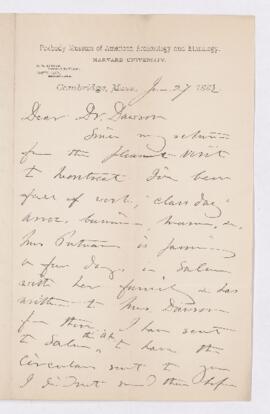 Peabody Museum of American Archæology and Ethnology,
HARVARD UNIVERSITY.
Cambridge, Mass. 27 1882
Dear Dr. Dawson
Since my return
from the pleasant visit
to Montreal I've been
full of work, "class day"
&c.
Mrs Putnam is passing
a few days in Salem
with her family & has
written to Mrs. Dawson
from there. I have sent
to Salem to have the
circulars sent to you
I did not send them before